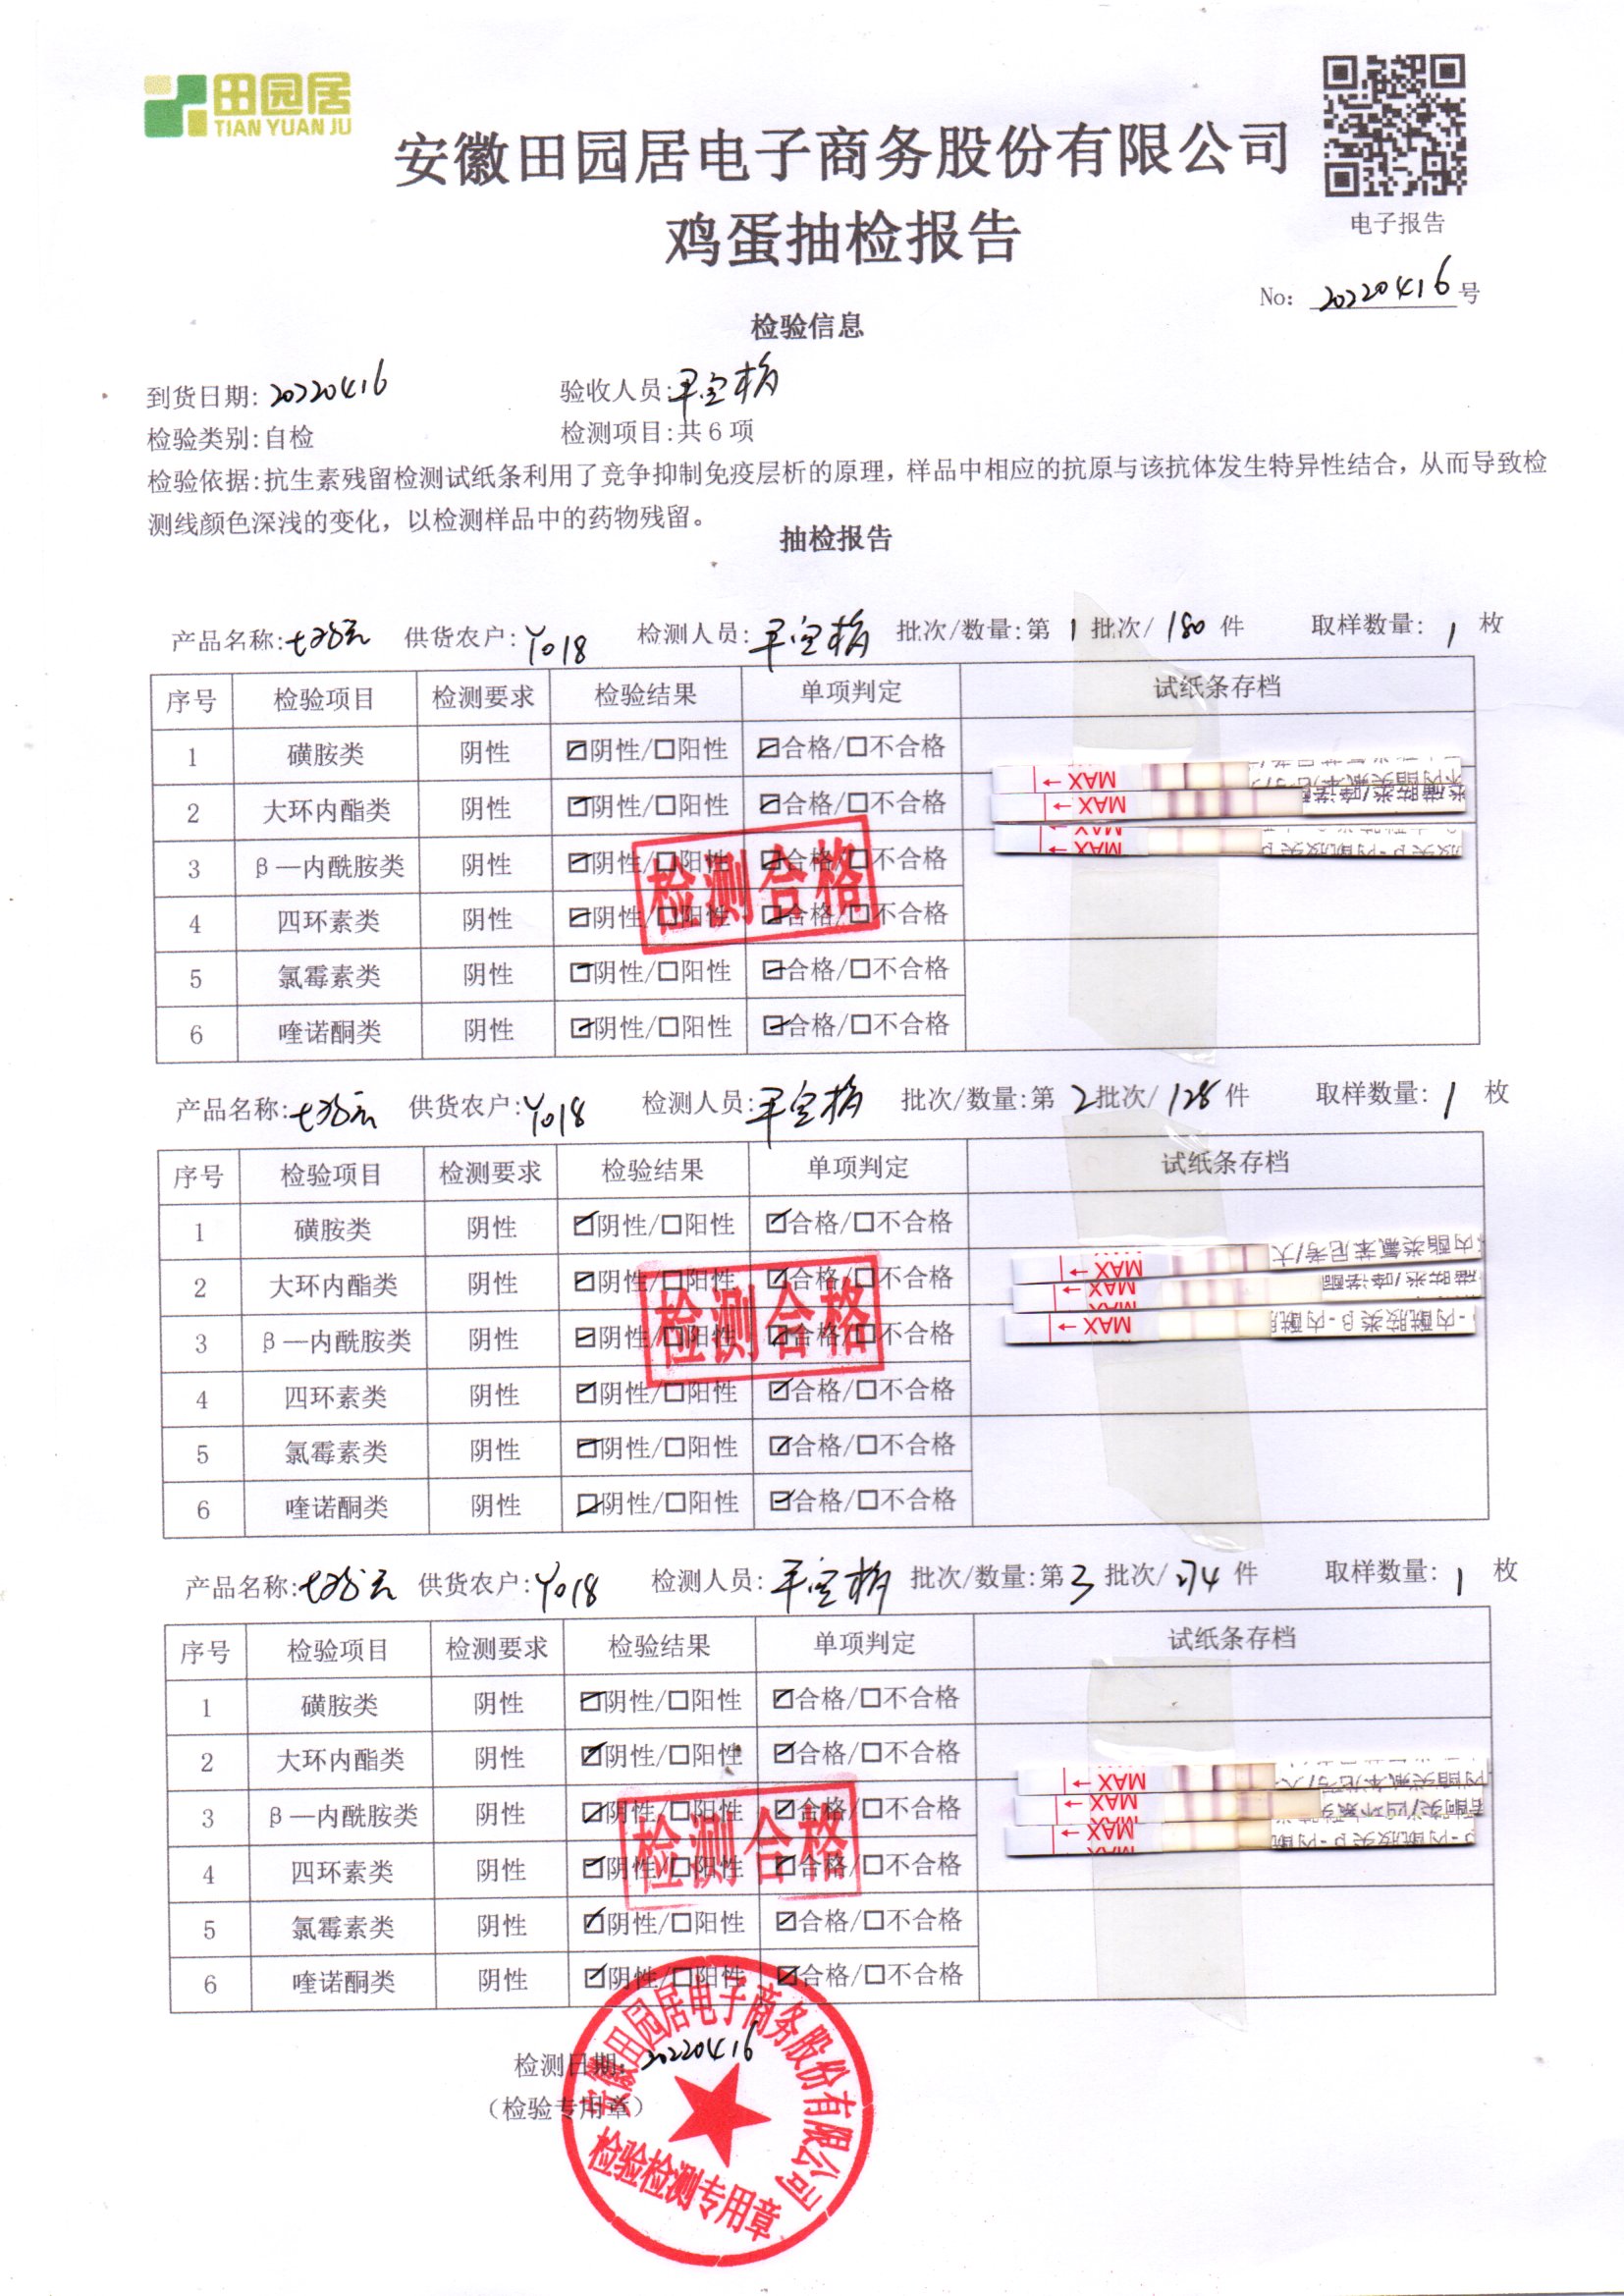 田园居
TIAN YUAN JU
安徽田园居电子商务股份有限公司
鸡蛋抽检报告
电子报告
No: 20220416号
检验信息
到货日期:20220416 验收人员:
检验类别:自检 检测项目:共6项
检验依据:抗生素残留检测试纸条利用了竞争抑制免疫层析的原理,样品中相应的抗原与该抗体发生特异性结合,从而导致检
测线颜色深浅的变化,以检测样品中的药物残留。
抽检报告
产品名称: 供货农户:Y018 检测人员: 批次/数量:第1批次/180件 取样数量:1枚
序号 检验项目 检测要求 检验结果 单项判定 试纸条存档
1 磺胺类 阴性 ☑阴性/☐阳性 ☑合格/☐不合格
2 大环内酯类 阴性 ☑阴性/☐阳性 ☑合格/☐不合格
3 β—内酰胺类 阴性 ☑阴性/☐阳性 ☑合格/☐不合格
4 四环素类 阴性 ☑阴性/☐阳性 ☑合格/☐不合格
5 氯霉素类 阴性 ☑阴性/☐阳性 ☑合格/☐不合格
6 喹诺酮类 阴性 ☑阴性/☐阳性 ☑合格/☐不合格
MAX
MAX
MAX
检测合格
产品名称: 供货农户:Y018 检测人员: 批次/数量:第2批次/128件 取样数量:1枚
序号 检验项目 检测要求 检验结果 单项判定 试纸条存档
1 磺胺类 阴性 ☑阴性/☐阳性 ☑合格/☐不合格
2 大环内酯类 阴性 ☑阴性/☐阳性 ☑合格/☐不合格
3 β—内酰胺类 阴性 ☑阴性/☐阳性 ☑合格/☐不合格
4 四环素类 阴性 ☑阴性/☐阳性 ☑合格/☐不合格
5 氯霉素类 阴性 ☑阴性/☐阳性 ☑合格/☐不合格
6 喹诺酮类 阴性 ☑阴性/☐阳性 ☑合格/☐不合格
MAX
MAX
MAX
检测合格
产品名称: 供货农户:Y018 检测人员: 批次/数量:第3批次/件 取样数量:1枚
序号 检验项目 检测要求 检验结果 单项判定 试纸条存档
1 磺胺类 阴性 ☑阴性/☐阳性 ☑合格/☐不合格
2 大环内酯类 阴性 ☑阴性/☐阳性 ☑合格/☐不合格
3 β—内酰胺类 阴性 ☑阴性/☐阳性 ☑合格/☐不合格
4 四环素类 阴性 ☑阴性/☐阳性 ☑合格/☐不合格
5 氯霉素类 阴性 ☑阴性/☐阳性 ☑合格/☐不合格
6 喹诺酮类 阴性 ☑阴性/☐阳性 ☑合格/☐不合格
MAX
MAX
MAX
检测合格
检测日期:20220416
(检验专用章)
安徽田园居电子商务股份有限公司
检验检测专用章